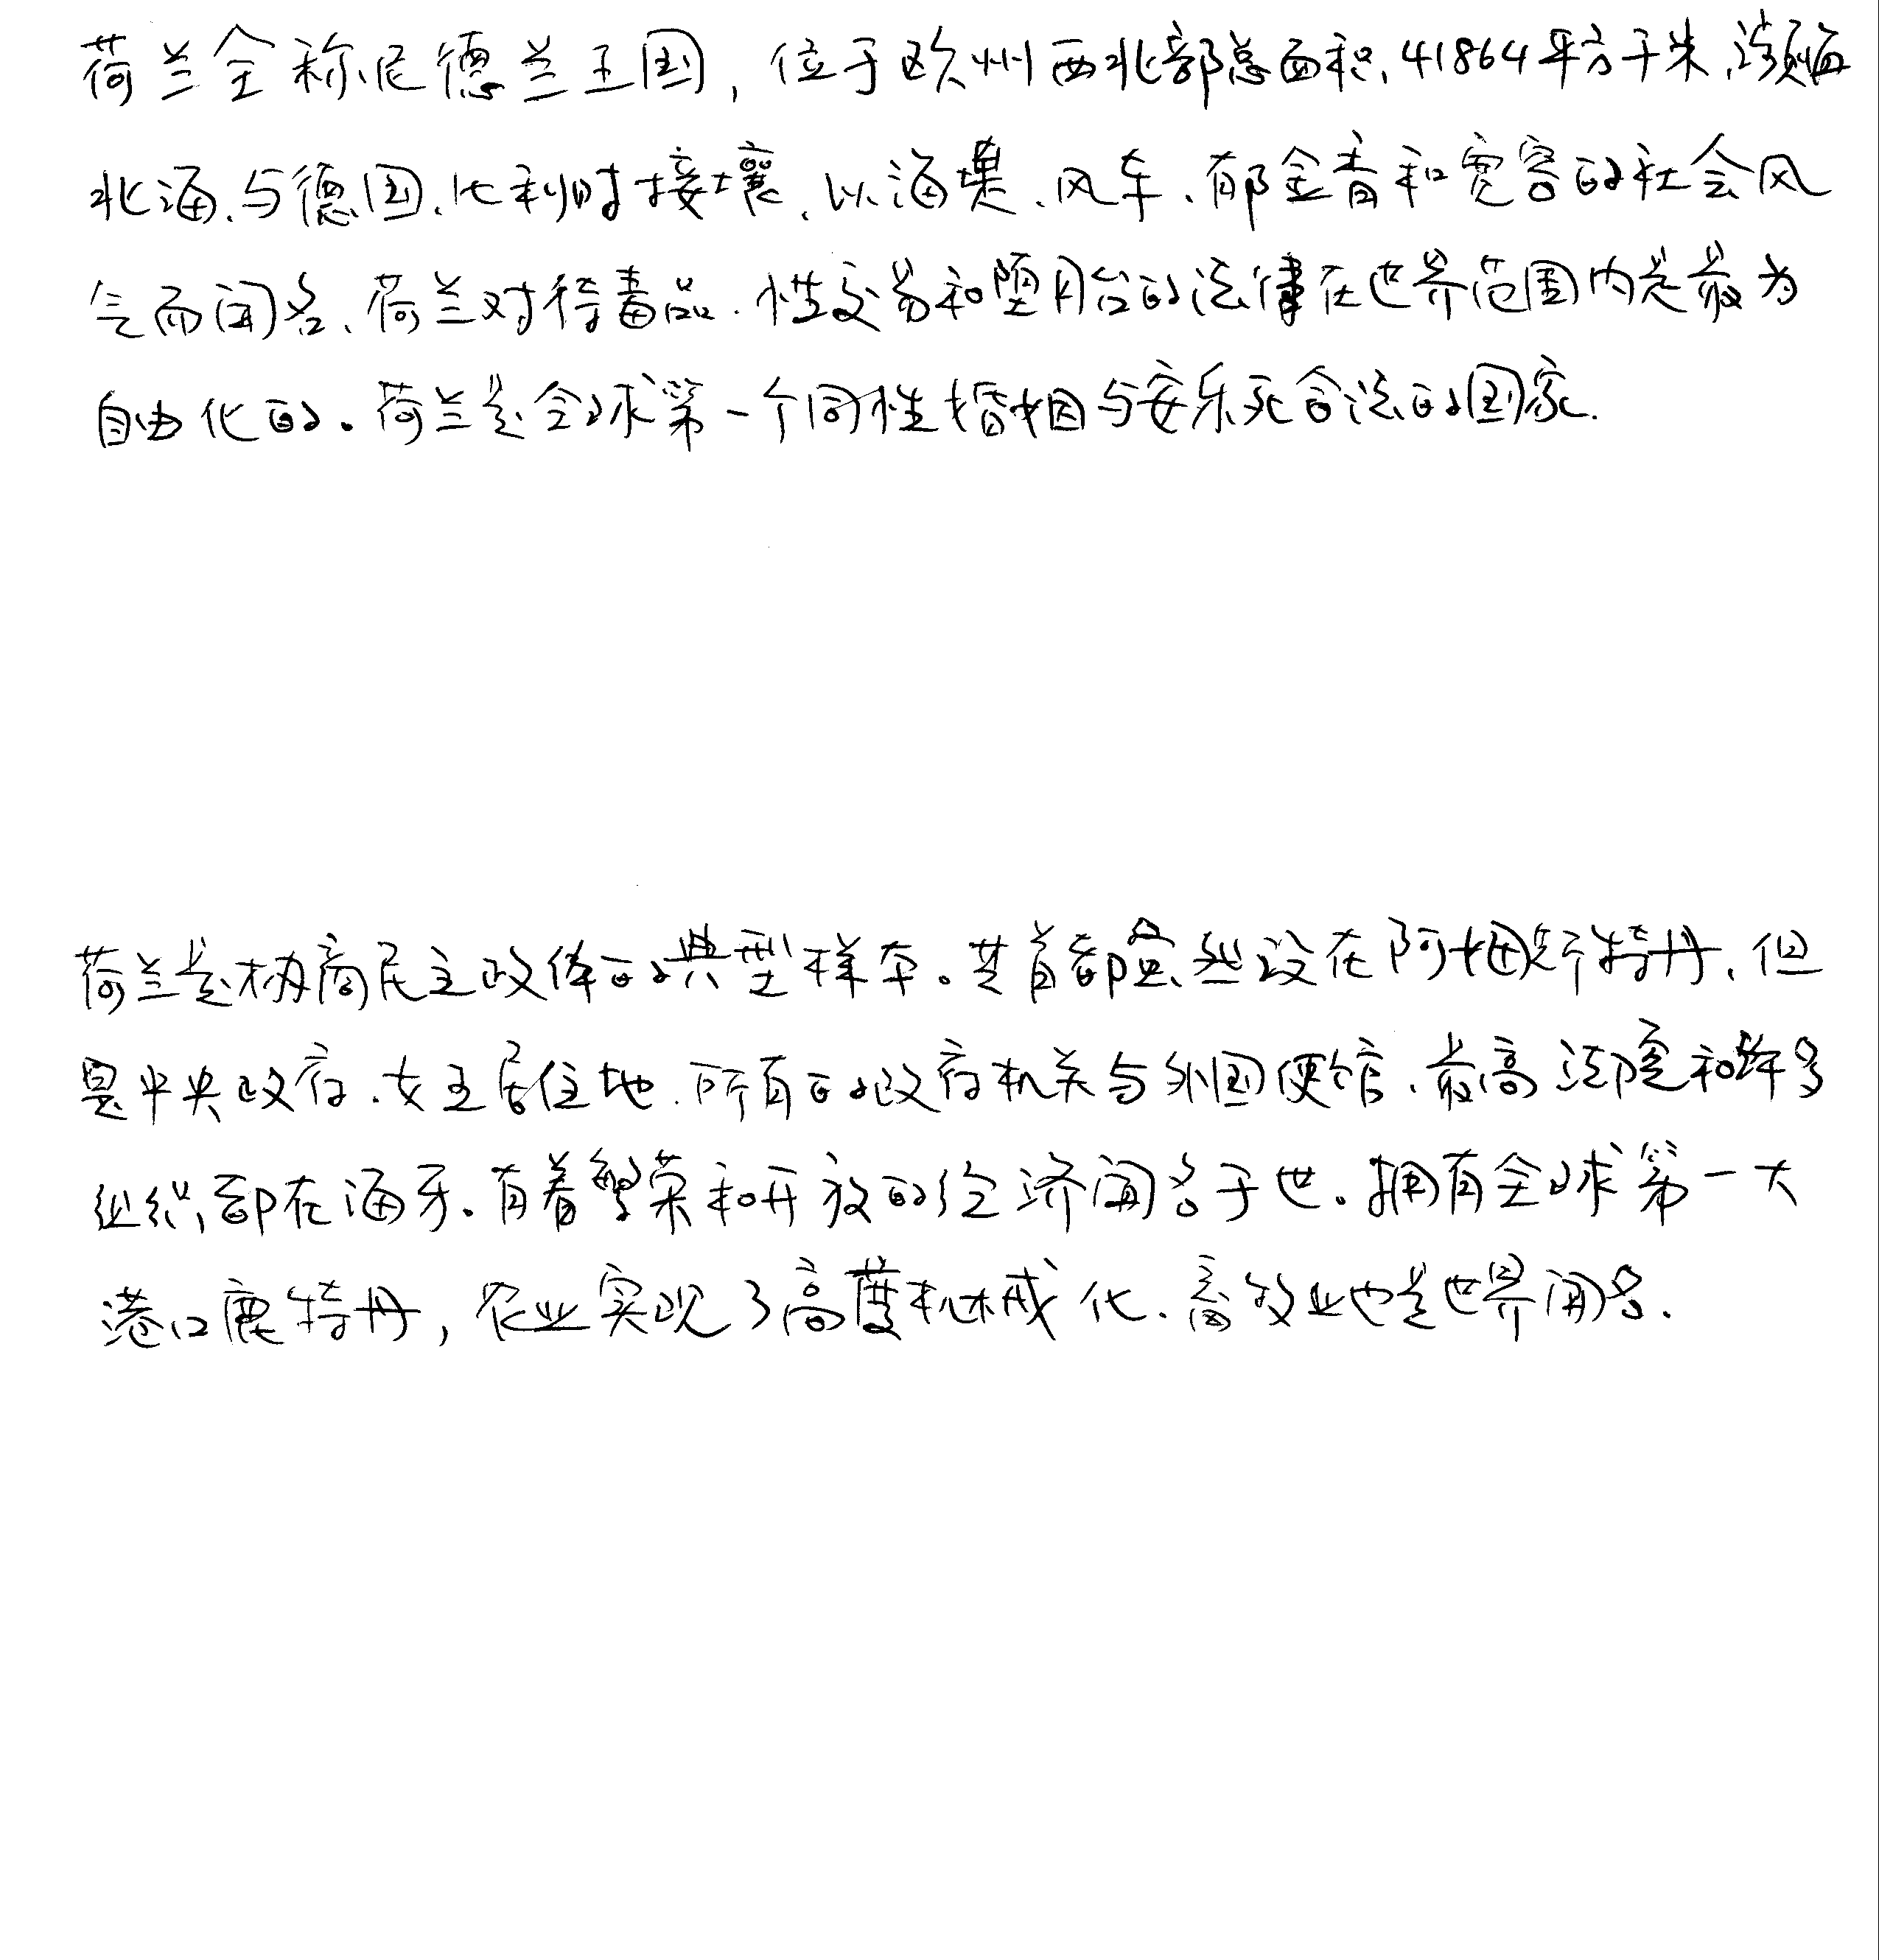 荷兰全称尼德兰王国，位于欧州西北部总面积、41864平方千米、濒临
北海、与德国、比利时接壤、以海堤、风车、郁金香和宽容的社会风
气而闻名、荷兰对待毒品、性交易和堕胎的法律在世界范围内是最为
自由化的。荷兰是全球第一个同性婚姻与安乐死合法的国家.
荷兰是协商民主政体的典型样本。其首都虽然设在阿姆斯特丹、但
是中央政府、女王居住地、所有的政府机关与外国使馆、最高法院和许多
组织都在海牙。有着繁荣和开放的经济闻名于世。拥有全球第一大
港口鹿特丹，农业实现了高度机械化、畜牧业也是世界闻名.